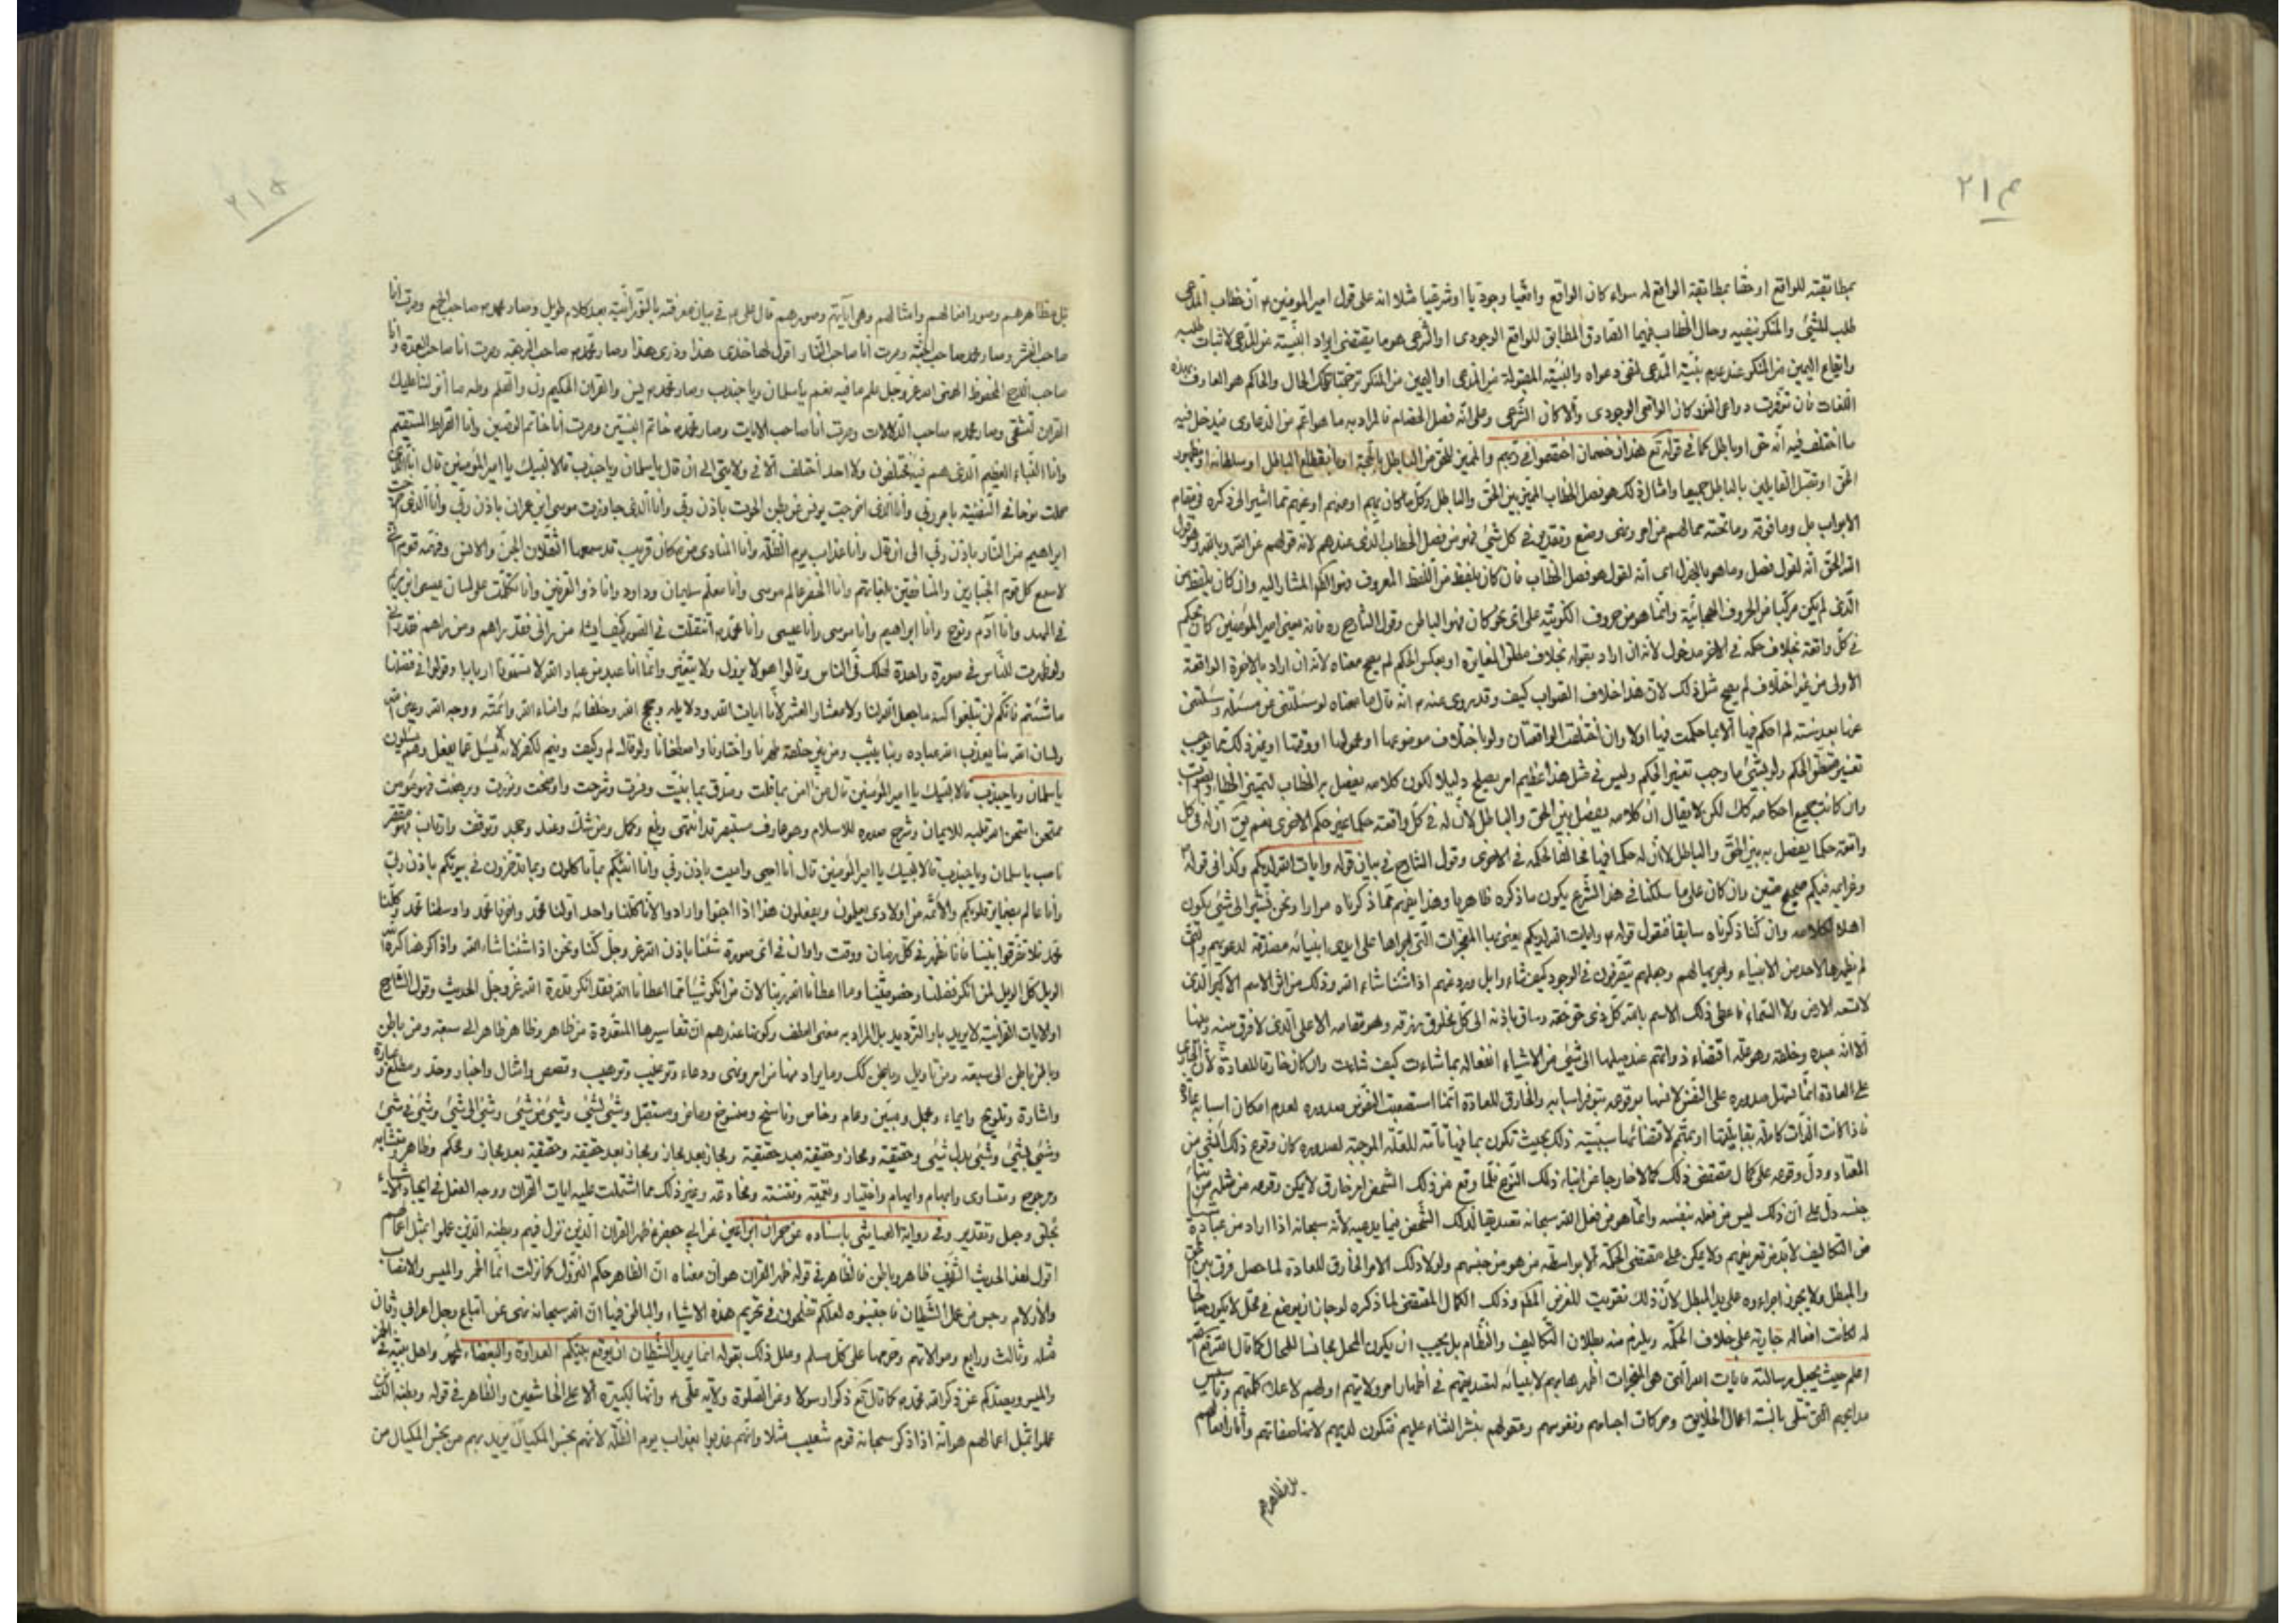 ٢١۴
بمطابقته للواقع او حقا بمطابقة الواقع له سواء كان الواقع واقعيا وجوديا او شرعيا مثلا انه على قول امير المؤمنين ع ان خطاب المدعى
طلب للشئ والمنكر نفيه وحال الخطاب فيهما الصادق المطابق للواقع الوجودى او الشرعى هو ما يقتضى ايراد البينة من المدعى لاثبات طلبه
وايقاع اليمين من المنكر عند عدم بينة المدعى لنفى دعواه والبينة المقبولة من المدعى او اليمين من المنكر ترجمتا تلك الحال والحاكم هو العارف بهذه
اللغات فان توفرت دواعى النور كان الواقعى الوجودى والا كان الشرعى وعلى انه فصل الخصام فالمراد به ما هو اعم من الدعاوى فيدخل فيه
ما اختلف فيه انه حق او باطل كما فى قوله تع هذان خصمان اختصموا فى ربهم والمميز للحق من الباطل بالحجة او بانقطاع الباطل او سلطانه او بظهور
الحق او بقتل القايلين بالباطل جميعا وامثال ذلك هو فصل الخطاب المميز بين الحق والباطل وكل ما كان بهم او منهم او عنهم مما اشير الى ذكره فى مقام
الابواب بل وما فوقه وما تحته مما لهم من امر ونهى وصنع وتقدير فى كل شئ فهو من فصل الخطاب الذى عندهم لانه قولهم عن الله وبالله وهو قول
الله الحق انه لقول فصل وما هو بالهزل اى انه لقول هو فصل الخطاب فان كان بلفظ من اللفظ المعروف فهو الظاهر المشار اليه وان كان بلفظ من
الذى لم يكن مركبا من الحروف الهجائية وانما هو من حروف الكونية على اى نحو كان فهو الباطن وقول الشارح ره فانه معنى امير المؤمنين كان يحكم
فى كل واقعة بخلاف حكمه فى الاخر مدخول لانه ان اراد بقوله بخلاف مطلق المغايرة او بعكس الحكم لم يصح معناه لانه ان اراد بالاخرة الواقعة
الاولى من غير اختلاف لم يصح مثل ذلك لان هذا خلاف الصواب كيف وقد روى عنه ع انه قال ما معناه لو سئلتنى عن مسئلة وسئلتنى
عنها بعد سنة لم احكم فيها الا بما حكمت فيها اولا وان اختلفت الواقعتان ولو باختلاف موضوعهما او محمولهما او وقتهما او غير ذلك مما يوجب
تغيير متعلق الحكم ولو بشئ ما وجب تغيير الحكم وليس فى مثل هذا عظيم امر يصلح دليلا لكون كلامه يفصل به الخطاب لتمييز الخطاء والصواب
وان كانت جميع احكامه كك لكن لا يقال ان كلامه يفصل بين الحق والباطل لان له فى كل واقعة حكما غير حكم الاخرى نعم يق ان له فى كل
واقعة حكما يفصل به بين الحق والباطل لا ان له حكما فيها مخالفا لحكمه فى الاخرى وقول الشارح فى بيان قوله وايات الله لديكم وكذا فى قوله
وعزايمه فيكم صحيح متين وان كان على ما سلكنا فى هذا الشرح يكون ما ذكره ظاهريا وهذا يفهم مما ذكرناه مرارا ونحن نشير الى شئ يكون
اهلا لكلامه وان كنا ذكرناه سابقا فنقول قوله ع وايات الله لديكم يعنى بها المعجزات التى اجراها على ايدى انبيائه مصدقة لدعوتهم والتى
لم يظهرها لاحد من الانبياء واجريها لهم وجعلهم يتصرفون فى الوجود كيف شاء
لا تسعه الارض ولا السماء
الا انه عبده وخلقه
على العادة انما تسهل صدوره على النفس لانسها بوقوعه بتوفر اسبابه والخارق للعادة انما استصعبت النفوس صدوره لعدم امكان اسبابه عادة
فاذا كانت الذات كاملة
المعتاد ودل وقوعه على كمال مقتضى ذلك كمالا خارجا عن ابناء ذلك النوع فلما وقع من ذلك الشخص امر خارق لا يمكن وقوعه من مثله من ابناء
جنسه دل على ان ذلك ليس من فعله بنفسه وانما هو من فعل الله سبحانه تصديقا لذلك الشخص فيما يدعيه لانه سبحانه اذا اراد من عباده
من التكاليف لا بد من تعريفهم ولا يمكن على مقتضى الحكمة الا بواسطة من هو من جنسهم ولولا ذلك الامر الخارق للعادة لما حصل فرق بين المحق
والمبطل ولا يجوز اجراءه على يد المبطل لان ذلك تفويت للغرض
له لكانت افعاله جارية على خلاف الحكمة ويلزم منه بطلان التكاليف والنظام بل يجب ان يكون المحل مجانسا للحال كما قال الله تع الله
اعلم حيث يجعل رسالته فايات الله التى هى المعجزات اظهرها بهم لانبيائه لتصديقهم فى اظهار امر ولايتهم
مدايحهم التى تتلى بالسنة اعمال الخلايق وحركات اجسامهم ونفوسهم وعقولهم بنشر الثناء عليهم
بل مظاهرهم
٢١۵
بل مظاهرهم وصور افعالهم وامثالهم وهى اياته وصورهم قال على ع فى بيان معرفته بالنورانية بعد كلام طويل وصار محمد ص صاحب الجمع وصرت انا
صاحب النشر وصار محمد صاحب الجنة وصرت انا صاحب النار اقول لها خذى هذا وذرى هذا وصار محمد ص صاحب الرجفة وصرت انا صاحب الهدة وانا
صاحب اللوح المحفوظ الهمنى الله عز وجل علم ما فيه نعم يا سلمان ويا جندب وصار محمد ص يس والقران الحكيم ون والقلم وطه ما انزلنا عليك
القران لتشقى وصار محمد ص صاحب الدلالات وصرت انا صاحب الايات وصار محمد ص خاتم النبيين وصرت انا خاتم الوصيين وانا الصراط المستقيم
وانا النباء العظيم الذى هم فيه مختلفون ولا احد اختلف الا فى ولايتى الى ان قال يا سلمان ويا جندب قالا لبيك يا امير المؤمنين قال انا الذى
حملت نوحا فى السفينة بامر ربى وانا الذى اخرجت يونس من بطن الحوت باذن ربى وانا الذى جاوزت موسى ابن عمران باذن ربى وانا الذى اخرجت
ابراهيم من النار باذن ربى الى ان قال وانا عذاب يوم الظلة وانا المنادى من مكان قريب قد سمعها الثقلان الجن والانس وفهمه قوم انى
لاسمع كل قوم الجبارين والمنافقين بلغاتهم وانا الخضر عالم موسى وانا معلم سليمان وداود وانا ذو القرنين وانا تكلمت على لسان عيسى ابن مريم
فى المهد وانا ادم ونوح وانا ابراهيم وانا موسى وانا عيسى وانا محمد ص انتقلت فى الصور كيف اشاء من رانى فقد راهم ومن راهم فقد رانى
ولو ظهرت للناس فى صورة واحدة لهلك فى الناس وقالوا هو لا يزول ولا يتغير وانما انا عبد من عباد الله لا تسمونا اربابا وقولوا فى فضلنا
ما شئتم فانكم لن تبلغوا كنه ما جعل الله لنا ولا معشار العشر لانا ايات الله ودلايله وحجج الله وخلفائه وامناء الله وائمته ووجه الله وعين الله
ولسان الله بنا يعذب الله عباده وبنا يثيب ومن بين خلقه طهرنا واختارنا واصطفانا ولو قال لم وكيف وفيم لكفر لانه لا يسئل عما يفعل وهم يسئلون
يا سلمان ويا جندب قالا لبيك يا امير المؤمنين قال من امن بما قلت وصدق بما بينت وفسرت وشرحت واوضحت ونورت وبرهنت فهو مؤمن
ممتحن امتحن الله قلبه للايمان وشرح صدره للاسلام وهو عارف مستبصر قد انتهى وبلغ وكمل ومن شك وعند وجحد وتوقف وارتاب فهو مقصر
ناصب يا سلمان ويا جندب قالا لبيك يا امير المؤمنين قال انا احيى واميت باذن ربى وانا انبئكم بما تاكلون وما تدخرون فى بيوتكم باذن ربى
وانا عالم بضماير قلوبكم والائمة من اولادى يعلمون ويفعلون هذا اذا احبوا وارادوا لانا كلنا واحد اولنا محمد واخرنا محمد واوسطنا محمد وكلنا
محمد فلا تفرقوا بيننا فانا نظهر فى كل زمان ووقت واوان فى اى صورة شئنا باذن الله عز وجل كنا ونحن اذا شئنا شاء الله واذا كرهنا كره الله
الويل كل الويل لمن انكر فضلنا وخصوصيتنا وما اعطانا الله ربنا لان من انكر شيئا مما اعطانا الله فقد انكر قدرة الله عز وجل الحديث وقول الشارح
او الايات القرانية لا يريد باو الترديد بل المراد به معنى العطف وكونها عندهم ان تفاسيرها المتعددة من ظاهر وظاهر ظاهر الى سبعة ومن باطن
وباطن باطن الى سبعة ومن تاويل وباطن كك وما يراد منها من امر ونهى ودعاء وترغيب وترهيب وقصص وامثال واخبار وحد ومطلع وعبارة
واشارة وتلويح وايماء ومجمل ومبين وعام وخاص وناسخ ومنسوخ وماض ومستقبل وشئ لشئ وشئ من شئ وشئ الى شئ وشئ فى شئ
وشئ بشئ وشئ بدل شئ وحقيقة ومجاز وحقيقة بعد حقيقة ومجاز بعد مجاز ومجاز بعد حقيقة وحقيقة بعد مجاز ومحكم وظاهر ومتشابه
ومرجوح ومتساوى وابهام وايهام واختيار وغير ذلك مما اشتملت عليه ايات القران ووجه الفعل فى ايجاد الاشياء
بخلق وجعل وتقدير وفى رواية العياشى باسناده عن حمران ابن اعين عن ابى جعفر ع ظهر القران الذين نزل فيهم وبطنه الذين عملوا بمثل اعمالهم
اقول لهذا الحديث الشريف ظاهر وباطن فالظاهر فى قوله ظهر القران هو ان معناه ان الظاهر حكم النزول كما نزلت انما الخمر والميسر والانصاب
والازلام رجس من عمل الشيطان فاجتنبوه لعلكم تفلحون فى تحريم هذه الاشياء والباطن فيها ان الله سبحانه نهى عن اتباع رجل اعرابى وثان
مثله وثالث ورابع وموالاتهم وحرمها على كل مسلم وعلل ذلك بقوله انما يريد الشيطان ان يوقع بينكم العداوة والبغضاء لمحمد واهل بيته فى الخمر
والميسر ويصدكم عن ذكر الله محمد ص كما قال تع ذكرا رسولا وعن الصلوة ولاية على ع وانها لكبيرة الا على الخاشعين والظاهر فى قوله وبطنه الذين
عملوا بمثل اعمالهم هو انه اذا ذكر سبحانه قوم شعيب مثلا وانهم عذبوا بعذاب يوم الظلة لانهم بخس المكيال يريد بهم من بخس المكيال من